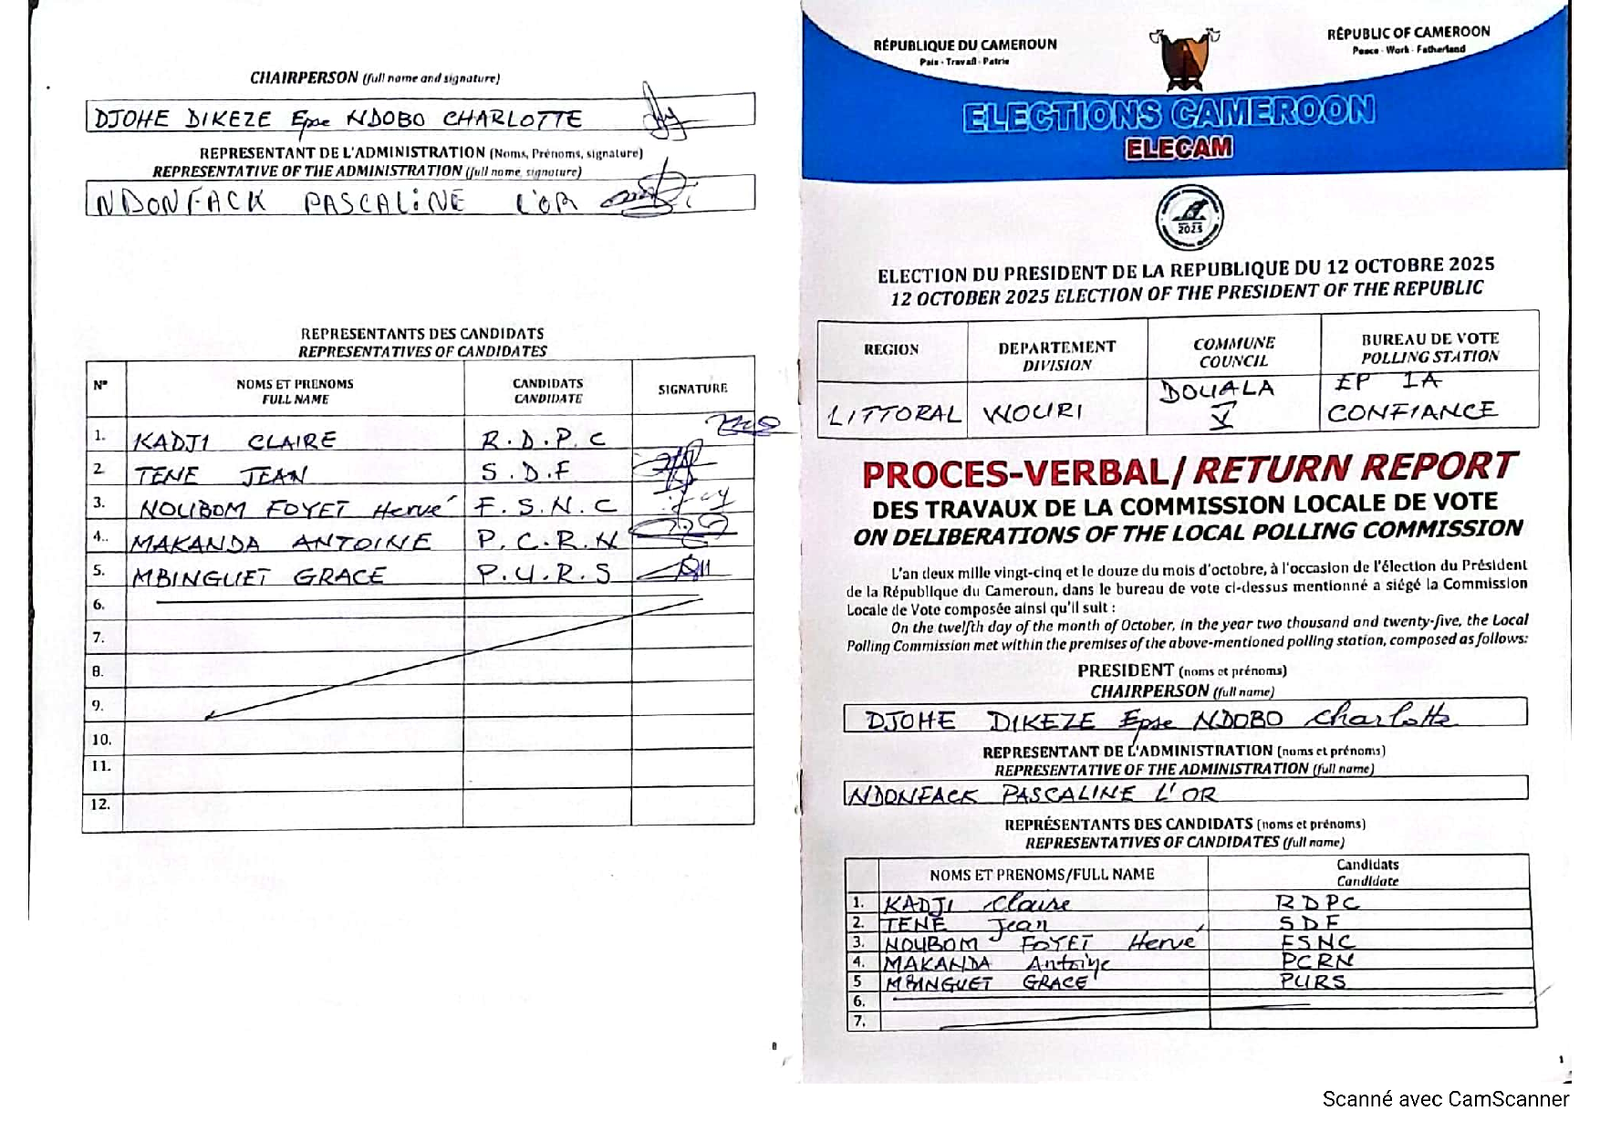 CHAIRPERSON (full name and signature)
DJOHE DIKEZE Epse NDOBO CHARLOTTE
REPRESENTANT DE L'ADMINISTRATION (Noms, Prénoms, signature)
REPRESENTATIVE OF THE ADMINISTRATION (full name, signature)
NDONFACK PASCALINE L'OR
REPRESENTANTS DES CANDIDATS
REPRESENTATIVES OF CANDIDATES
N° NOMS ET PRENOMS CANDIDATS SIGNATURE
FULL NAME CANDIDATE
1. KADJI CLAIRE R.D.P.C
2 TENE JEAN S.D.F
3. NOUBOM FOYET Hervé F.S.N.C
4.. MAKANDA ANTOINE P.C.R.N
5. MBINGUET GRACE P.U.R.S
6.
7.
8.
9.
10.
11.
12.
8
RÉPUBLIQUE DU CAMEROUN
Paix - Travail - Patrie
RÉPUBLIC OF CAMEROON
Peace - Work - Fatherland
ELECTIONS CAMEROON
ELECAM
2025
ELECTION DU PRESIDENT DE LA REPUBLIQUE DU 12 OCTOBRE 2025
12 OCTOBER 2025 ELECTION OF THE PRESIDENT OF THE REPUBLIC
REGION DEPARTEMENT COMMUNE BUREAU DE VOTE
DIVISION COUNCIL POLLING STATION
LITTORAL WOURI DOUALA V EP 1A CONFIANCE
PROCES-VERBAL/ RETURN REPORT
DES TRAVAUX DE LA COMMISSION LOCALE DE VOTE
ON DELIBERATIONS OF THE LOCAL POLLING COMMISSION
L'an deux mille vingt-cinq et le douze du mois d'octobre, à l'occasion de l'élection du Président
de la République du Cameroun, dans le bureau de vote ci-dessus mentionné a siégé la Commission
Locale de Vote composée ainsi qu'il suit :
On the twelfth day of the month of October, in the year two thousand and twenty-five, the Local
Polling Commission met within the premises of the above-mentioned polling station, composed as follows:
PRESIDENT (noms et prénoms)
CHAIRPERSON (full name)
DJOHE DIKEZE Epse NDOBO Charlotte
REPRESENTANT DE L'ADMINISTRATION (noms et prénoms)
REPRESENTATIVE OF THE ADMINISTRATION (full name)
NDONFACK PASCALINE L'OR
REPRÉSENTANTS DES CANDIDATS (noms et prénoms)
REPRESENTATIVES OF CANDIDATES (full name)
NOMS ET PRENOMS/FULL NAME Candidats
Candidate
1. KADJI Claire RDPC
2. TENE Jean SDF
3. NOUBOM FOYET Hervé FSNC
4. MAKANDA Antoine PCRN
5 MBINGUET GRACE PURS
6.
7.
1
Scanné avec CamScanner